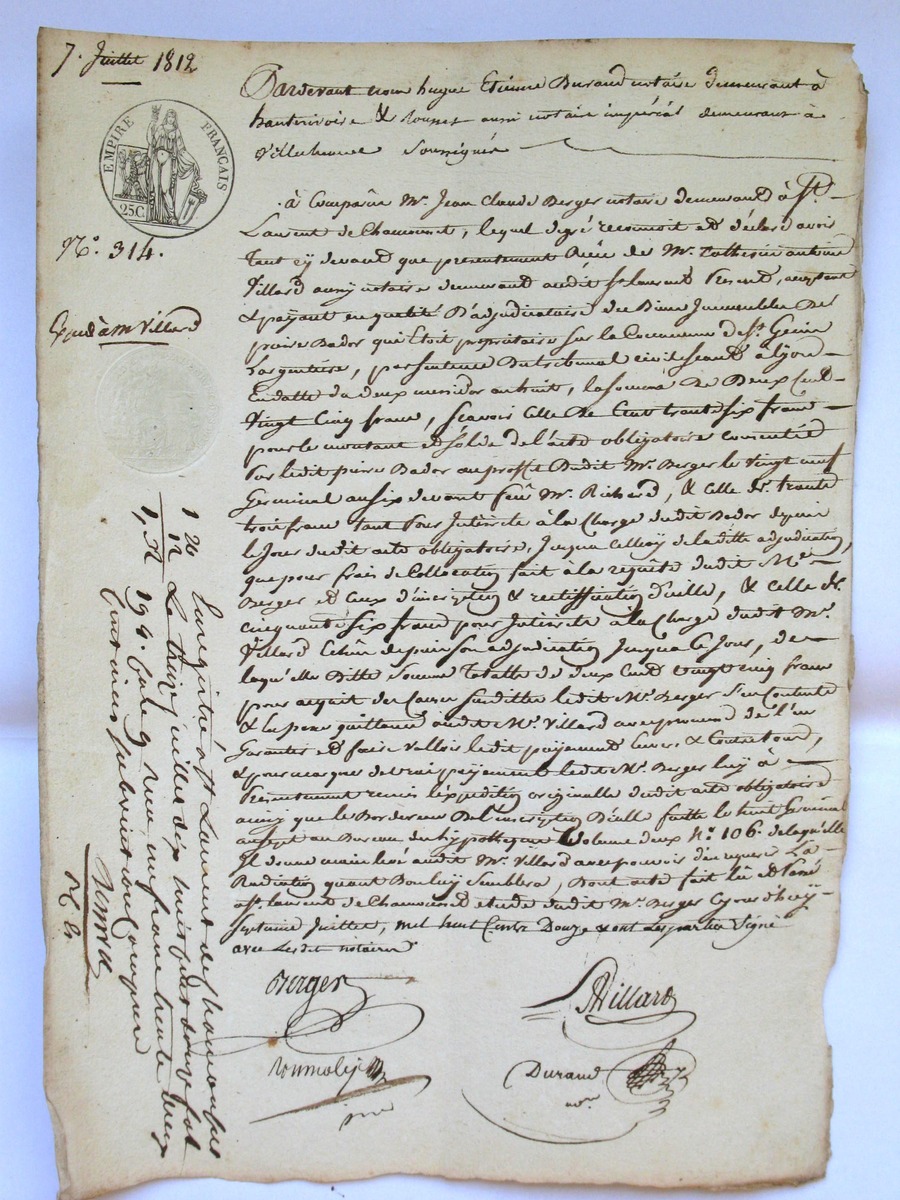 7. Juillet 1812
EMPIRE FRANÇAIS
25C.
N.º 314.
Exped. à M Villard
Pardevant nous hugue Etienne Durand notaire demeurant à
hauterivoire & aussi notaire impérial demeurant à
Villechenève Soussignés
à Comparu Mr. Jean Claude Berger notaire demeurant à St.
Laurent de Chamousset, lequel de gré reconnoit et déclare avoir
tant cy devant que presentement Reçu de Mr. antoine
Villard aussy notaire demeurant audit St. laurent Present, acceptant
& payant en qualité D'adjudicataire des Biens Immeubles De
pierre Bador qui Etoit propriétaire sur la Commune de St. Genis
Largentière, par sentence Du tribunal civil séant à lyon
En datte du deux messidor an huit, la somme De Deux Cent
Vingt Cinq francs, scavoir Celle De Cent trente six francs
pour le montant et solde de l'acte obligatoire consentie
Par ledit pierre Bador au proffit Dudit Mr. Berger le vingt neuf
Germinal an six devant feu Mr. Richard, & celle de trente
trois francs tant Pour Interets à la Charge dudit Bador depuis
le Jour dudit acte obligatoire, Jusqua Celluy de laditte adjudication,
que pour frais de Collocation fait à la requête dudit Mr.
Berger et Ceux d'inscription & rectiffication d'icelle, & celle de
cinquante six francs pour Interets à la Charge dudit Mr.
Villard Echus depuis son adjudication Jusqua Ce Jour, de
laquelle Ditte Somme Totalle de deux Cent vingt cinq francs
pour acquit des Causes Susdittes ledit Mr. Berger s'en Contente
& En passe quittance audit Mr. Villard avec promesse de l'en
Garantir et faire Valloir ledit payement Envers & Contre tous,
& pour marque de vrai payement ledit Mr. Berger luy à
Presentement remis l'expédition originalle dudit acte obligatoire
ainsy que le Bordereau De l'inscription D'icelle faitte le huit Germinal
an sept au Bureau des hypotteques Volume deux N.º 106. de laquelle
Il donne main levé audit Mr. Villard avec pouvoir d'en requerir La
Radiation quant Bon luy Semblera, Dont acte fait lû et Passé
à St. laurent de Chamousset etude dudit Mr. Berger Cejourd'huy
sept Juillet, mil huit Cents Douze & ont les parties Signé
avec Lesdit notaires
Berger
Villard
Durand
nore.
1 20
12
1,32
Enregistré à St Laurent de chamousset
Le treize juillet dix huit cent douze fol
194. Reçu un franc trente deux
centimes subvention comprise